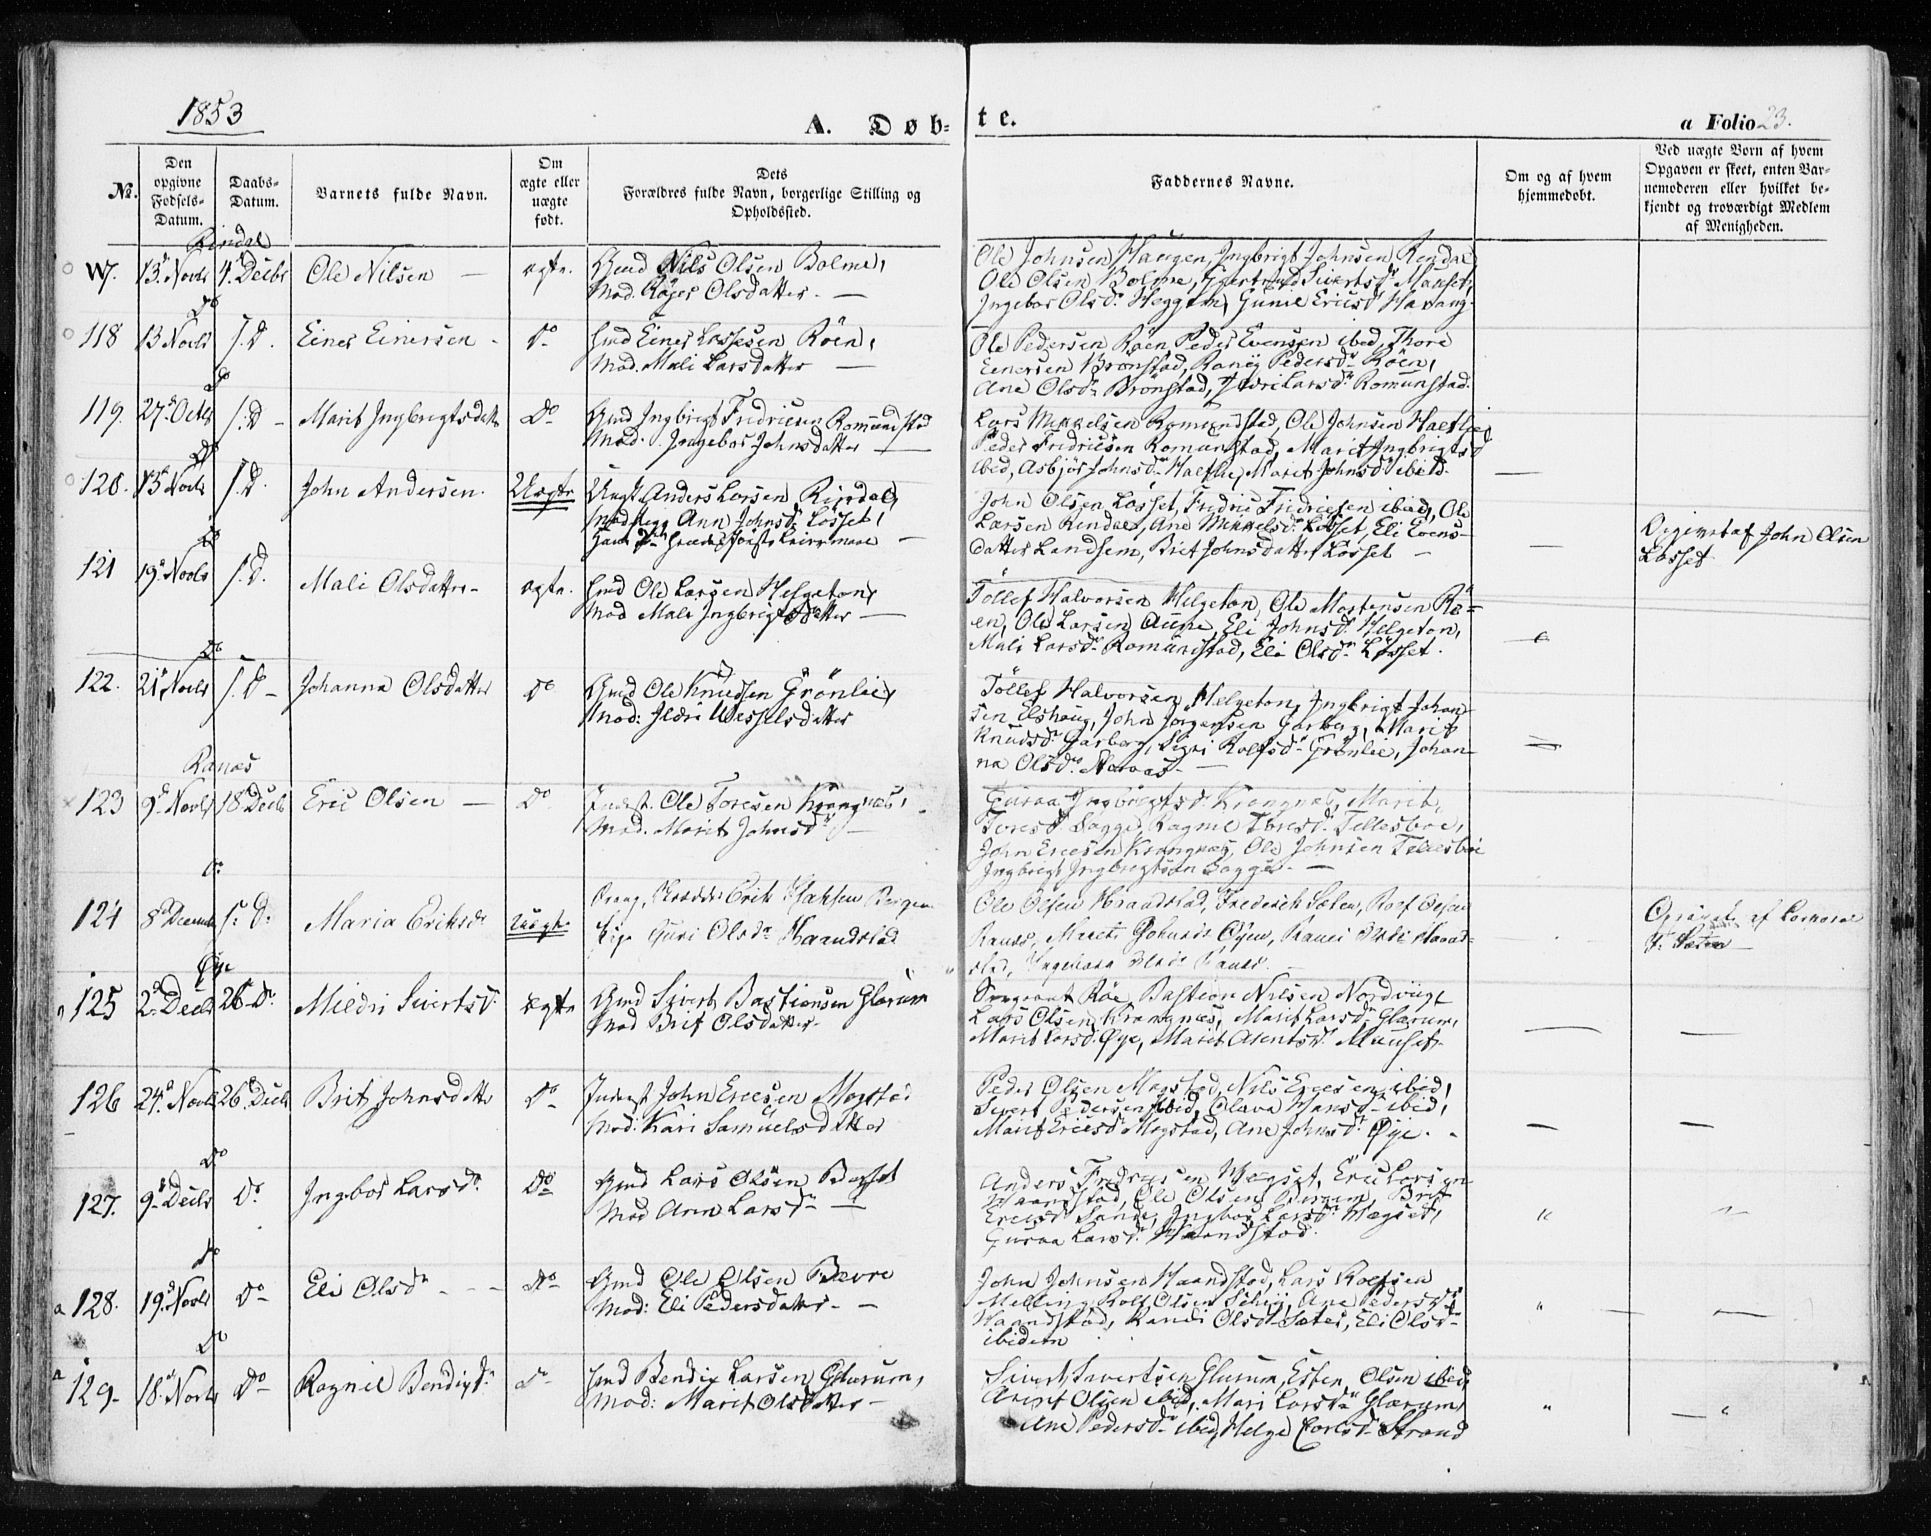 1853
A. Døb-te.
a Folio 23.
No.
Den opgivne Fødsels-Datum.
Daabs-Datum.
Barnets fulde Navn.
Om ægte eller uægte født.
Dets Forældres fulde Navn, borgerlige Stilling og Opholdssted.
Faddernes Navne.
Om og af hvem hjemmedøbt.
Ved uægte Børn af hvem Opgaven er skeet, enten Barnemoderen eller hvilket bekjendt og troværdigt Medlem af Menigheden.
Rindal
117. 13. Novbr 4. Decbr Ole Nilsen — ægte. Gmd Nils Olsen Bolme,
Mod. Olsdatter. —
Ole Johnsen Haugen, Ingbrigt Johnsen Rendal
Ole Olsen Bolme, Giertrud Sivertsdr Mauset,
Ingebor Olsdr Heggem, Gunil Ericsdr
Do
118 13 Novbr s. D. Einer Einersen - Do Gmd Einer Røen,
Mod. Mali Larsdatter —
Ole Pedersen Røen Peder Evensen ibid, Thore
Einersen Brønstad, Ranøg Pedersdr Røen,
Ane Olsdr Brønstad, Larsdr Romunstad.
Do
119. 27. Octbr s. D - Marit Ingbrigtsdattr Do Gmd Ingbrigt Fridricsen Romundstad
Mod. Ingebor Johnsdatter —
Lars Mikkelsen Romundstad, Ole Johnsen
Peder Fridricsen Romunstad, Marit Ingbrigtsd
ibid, Asbjør Johnsdr Marit Johnsdr ibid.
Do
120. 13 Novbr s. D. John Andersen. Uægte Ungk. Anders Larsen Rindal,
Mod Pige Ann Johnsdr Løsset,
John Olsen Løsset, Fredric Fridricsen ibid, Ole
Larsen Rindal, Ane Mikkelsdr Løsset, Eli Evens-
datter Landsem, Brit Johnsdatter Løsset —
Opgivet af John Olsen
Løsset.
Do
121 19. Novbr s. D. Mali Olsdatter - ægte. Gmd Ole Larsen Helgeton,
Mod Mali Ingbrigtsdatter —
Tøllef Halvorsen Helgeton, Ole Mortensen Rø-
en, Ole Larsen Aune, Eli Johnsdr Helgeton,
Mali Larsdr Romundstad, Eli Olsdr Løsset.
Do
122. 21 Novbr s. D - Johanna Olsdatter Do Gmd Ole Knudsen Grønlie,
Mod: Ildri Wesselsdatter
Tøllef Halvorsen Helgeton, Ingbrigt Johan-
sen Elshaug, John Jørgensen Garberg, Marit
Knudsdr Garberg, Sigri Rolfsdr Grønlie, Johan-
na Olsdr
Ranæs
123 9. Novbr 18 Decbr Eric Olsen — Do Inderst. Ole Toresen Krangnæs,
Mod. Marit Johnsdr —
Guraa Ingbrigtsdr Krangnæs, Marit
Toresdr Bagge, Toresdr Tellesbøe,
John Ericsen Krangnæs, Ole Johnsen Tellesbøe
Ingbrigt Ingbrigtsen Bagge. —
Do
124 8 Decembr s: D: Maria Eriksdr Uægte. Erik
Pige Guri Olsdr Haandstad
Ole Olsen Haandstad, Frederich Sæter, Rolf Olsen
Ranæs, Marit Øyen,
Opgivet af
Øye
125 2. Decbr 26 Dr Mildri Sivertsdr ægte Gmd Sivert Bastiansen Glærum
Mod Brit Olsdatter -
Sergeant Røe, Bastian Nilsen Nordviig,
Lars Olsen Krangnæs, Marit Larsdr Glærum,
Marit Larsdr Øye, Marit Arentsdr Mauset
126 24. Novbr 26. Decbr Brit Johnsdatter Do Inderst John Ericsen Mogstad
Mod: Kari Samuelsdatter
Peder Olsen Mogstad, Nils Ericsen ibid,
Sivert Pedersen ibid, Olava Hansdr ibid,
Marit Ericsdr Mogstad, Ane Johnsdr Øye.
Do
127. 9. Decbr Do Ingbor Larsdr Do Gmd Lars Olsen
Mod Ann Larsdr —
Anders Eric Larsen
Haandstad, Ole Olsen Brit
Ericsdr Sande, Ingbor Larsdr
Guraa Larsdr Haandstad.
Do
128. 19. Novbr Do Eli Olsdr - - - Do Gmd Ole Olsen Bævre
Mod: Eli Pedersdatter - —
John Johnsen Haandstad, Lars Rolfsen
Melling, Rolf Olsen Ane Pedersdr
Haandstad, Olsdr Sæter, Eli Olsdr
ibidem
Do
129. 18. Novbr Do Ragnil Bendixdr Do Gmd Bendix Larsen Glærum,
Mod: Marit Olsdatter -
Sivert Sivertsen Glærum, Esten Olsen ibid,
Arnt Olsen ibid, Mari Larsdr Glærum,
Ane Pedersdr ibid, Helge Carlsdr Strand